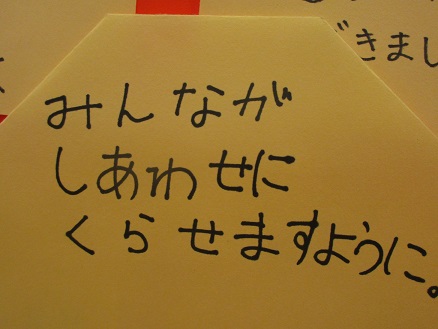 みんなが
しあわせに
くらせますように。
できまし